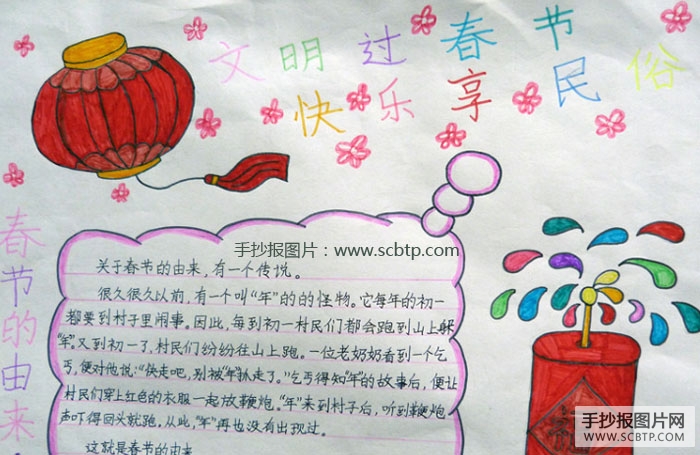 文明过春节
快乐享民俗
春节的由来
手抄报图片：www.scbtp.com
关于春节的由来，有一个传说。
很久很久以前，有一个叫“年”的的怪物。它每年的初一
都要到村子里闹事。因此，每到初一村民们都会跑到山上躲
“年”。又到初一了，村民们纷纷往山上跑。一位老奶奶看到一个乞
丐，便对他说：“快走吧，别被“年”扒走了。”乞丐得知“年”的故事后，便让
村民们穿上红色的衣服一起放鞭炮。“年”来到村子后，听到鞭炮
声吓得回头就跑，从此，“年”再也没有出现过。
这就是春节的由来
手抄报图片网
WWW.SCBTP.COM